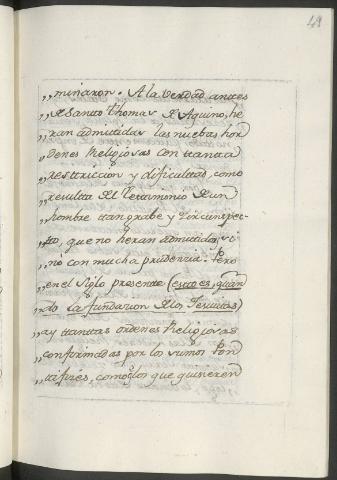 49
,,minaron. A la verdad antes
,,de Santo Thomas de Aquino, he
,,ran admitidas las nuebas hor
,,denes Religiosas con tanta
,,restriccion y dificultad, como
,,resulta del testimonio de un
,,hombre tan grabe y circunspec-
,,to, que no heran admitidas, si
,,nò con mucha prudencia. Pero
,,en el siglo presente (esto es, quan
,,do la fundacion de los Jesuitas)
,,ay tantas ordenes Religiosas
,,confirmadas por los sumos Pon
,,tifices, como los que quisieren